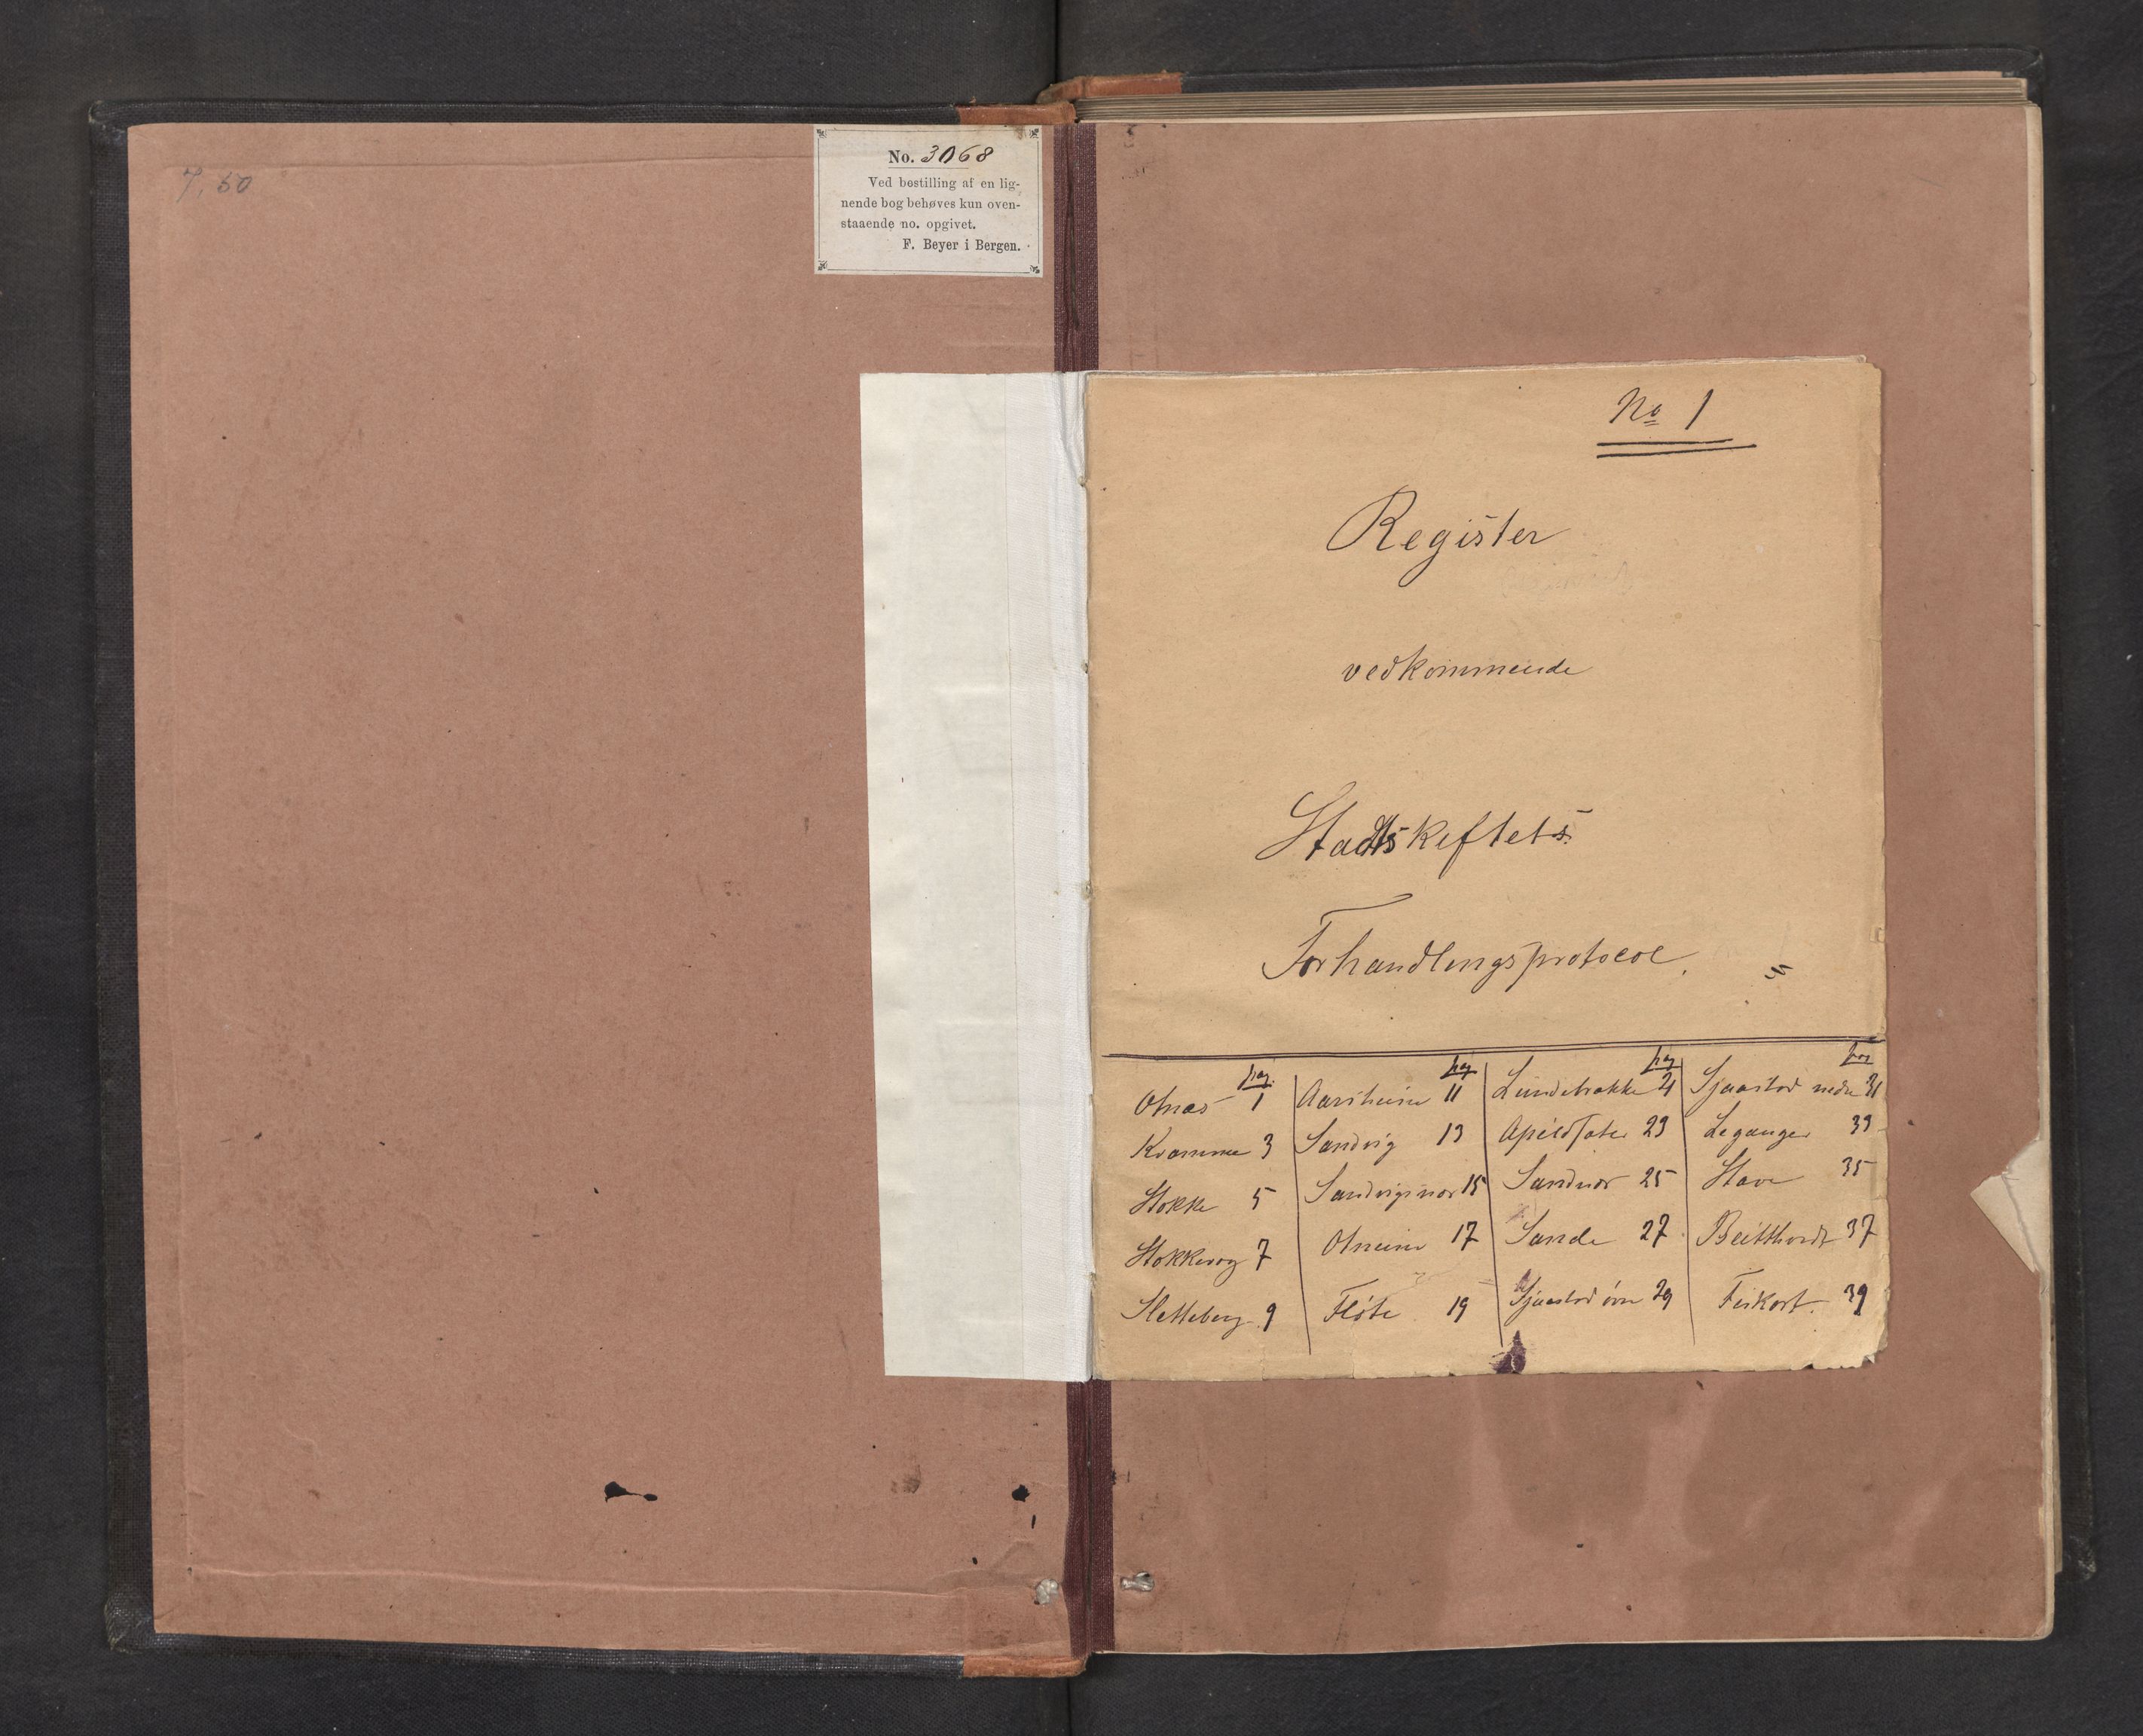 7,50
No. 3068
Ved bestilling af en lig-
nende bog behøves kun oven-
staaende no. opgivet.
F. Beyer i Bergen.
No 1
Register
vedkommende
Stadtskiftets
Forhandlingsprotocol.
pag. pag pag pag
Otnæs 1 Aarsheim 11 Lundebrække 21 Sjaastad nedre 31
Kvamme 3 Sandvig 13 Apeldsæter 23 Leganger 33
Stokke 5 Sandvigsnor 15 Sandnor 25 Stave 35
Stokkevag 7 Otneim 17 Sande 27 37
Sletteberg 9 Fløte 19 Sjaastad övre 29 Feskort. 39